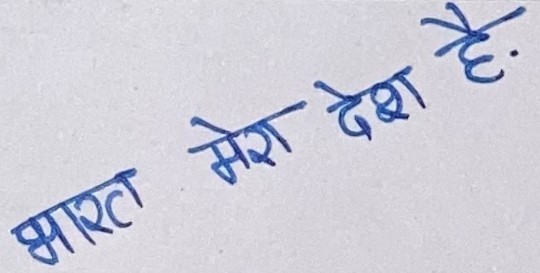 भारत मेरा देश है.